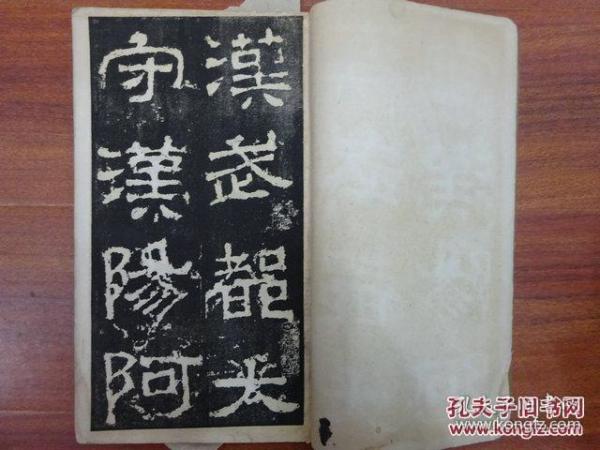 漢武都太
守漢陽阿
孔夫子旧书网
www.kongfz.com